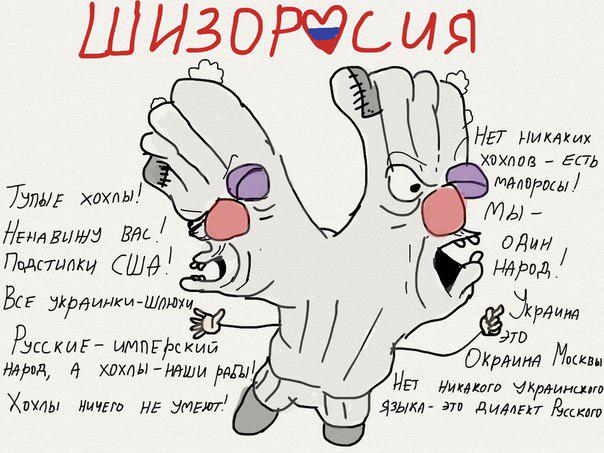 ШИЗОРОСИЯ
Тупые хохлы!
Ненавижу вас!
Подстилки США!
Все украинки-шлюхи
Русские-имперский
народ, а хохлы-наши рабы!
Хохлы ничего не умеют!
Нет никаких
хохлов - есть
малоросы!
Мы -
один
народ!
Украина
это
Окраина Москвы
Нет никакого украинского
языка - это диалект Русского